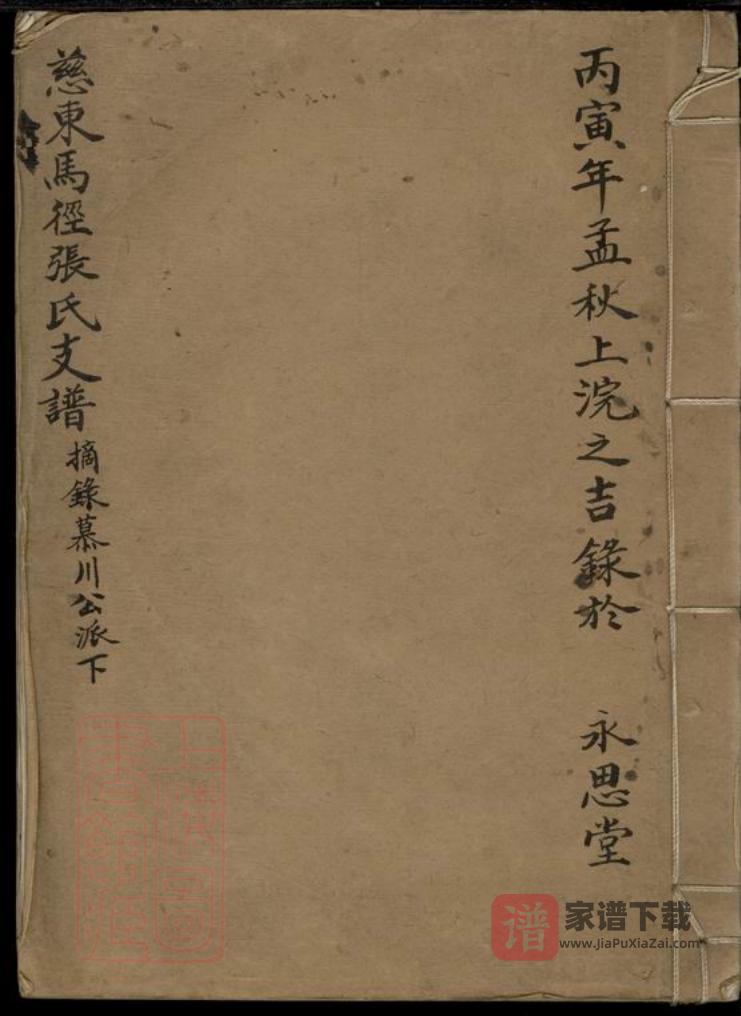 丙寅年孟秋上浣之吉錄於 永思堂
慈東馬徑張氏支譜 摘錄慕川公派下
上海圖書館藏
谱 家谱下载
www.JiaPuXiaZai.com